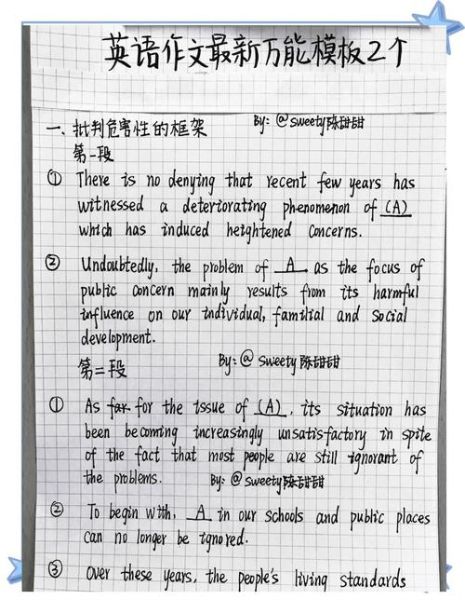 英语作文最新万能模板2个
一、批判危害性的框架 By: @sweety陈甜甜
第一段
① There is no denying that recent few years has
witnessed a deteriorating phenomenon of (A)
which has induced heightened concerns.
② Undoubtedly, the problem of A as the focus of
public concern mainly results from its harmful
influence on our individual, familial and social
development.
第二段 By: @ sweety陈甜甜
① As far for the issue of (A), its situation has
been becoming increasingly unsatisfactory in spite
of the fact that most people are still ignorant of
the problems. By: @ sweety陈甜甜
② To begin with, A in our schools and public places
can no longer be ignored.
③ Over these years, the people's living standards